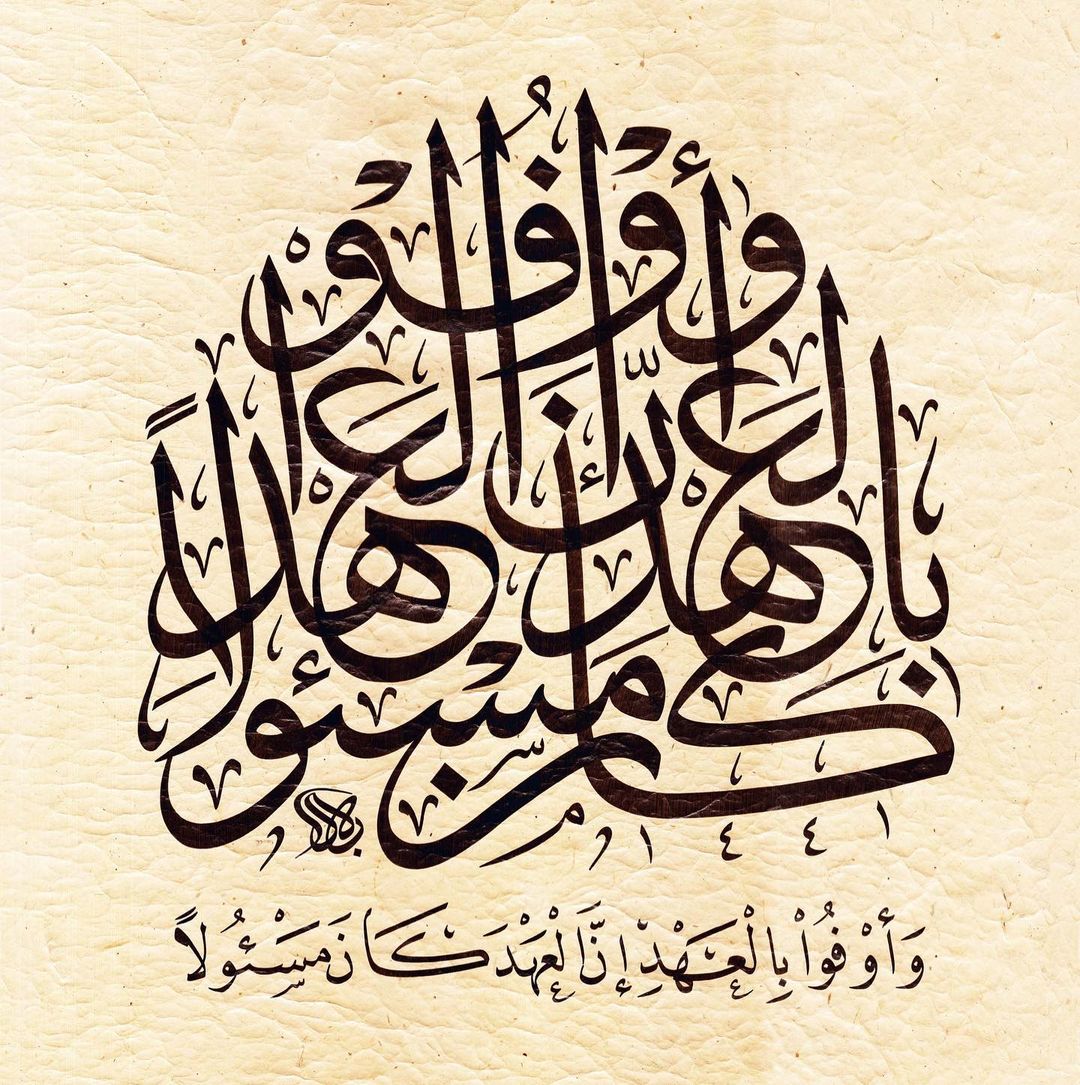 وأوفوا بالعهد إن العهد كان مسئولاً
١٤٤١
وَأَوْفُوا۟ بِالْعَهْدِ إِنَّ الْعَهْدَ كَانَ مَسْئُولاً